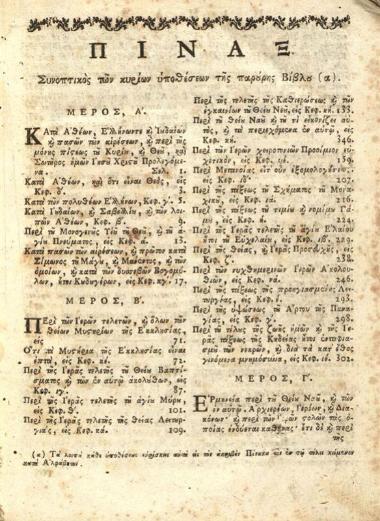 ΠΙΝΑΞ
Συνοπτικὸς τῶν κυρίων ὑποθέσεων τῆς παρούσης Βίβλου (α).
ΜΕΡΟΣ, Α'.
ΚΑΤΑ Ἀθέων, Ἑλλήνων τε καὶ Ἰουδαίων
καὶ πασῶν τῶν αἱρέσεων, καὶ περὶ τῆς
μόνης πίστεως τοῦ Κυρίου, καὶ Θεοῦ, καὶ
Σωτῆρος ἡμῶν Ἰησοῦ Χριστοῦ Προλεγόμε-
να. Σελ. 1.
Κατὰ Ἀθέων, καὶ ὅτι εἶναι Θεὸς, εἰς
Κεφ. δ. 3.
Κατὰ τῶν πολυθέων Ἑλλήνων, Κεφ. γ'. 5.
Κατὰ Ἰουδαίων, καὶ Σαβελλίου, καὶ τῶν λοι-
πῶν Ἀθέων, Κεφ. δ'.
Περὶ τοῦ Μονογενοῦς Υἱοῦ τοῦ Θεοῦ, καὶ τοῦ ἁ-
γίου Πνεύματος, εἰς Κεφ.
Κατὰ πασῶν τῶν αἱρέσεων, καὶ πρῶτον κατὰ
Σίμωνος τοῦ Μάγου, καὶ Μανέντος, καὶ τῶν
ὁμοίων, καὶ κατὰ τῶν δυσσεβῶν Βογομύ-
λων, ἤτοι Κουδουγέρων, εἰς Κεφ. 17.
ΜΕΡΟΣ, Β'.
ΠΕρὶ τῶν Ἱερῶν τελετῶν, καὶ ὅλων τῶν
Θείων Μυστηρίων τῆς Ἐκκλησίας
εἰς 71.
Ὅτι τὰ Μυστήρια τῆς Ἐκκλησίας εἶναι
ἑπτὰ, εἰς Κεφ. 72.
Περὶ τῆς Ἱερᾶς τελετῆς τοῦ Θείου Βαπτί-
σματος καὶ τῶν ἐν αὐτῷ ἀκολούθων, εἰς
Κεφ. 87.
Περὶ τῆς Ἱερᾶς τελετῆς τοῦ ἁγίου Μύρου,
εἰς Κεφ. 101.
Περὶ τῆς Ἱερᾶς τελετῆς τῆς Θείας Λειτουρ-
γίας, εἰς Κεφ. 109.
Περὶ τῆς τελετῆς τῆς Καθιερώσεως καὶ τῶν
ἐγκαινίων τοῦ Θείου Ναοῦ, εἰς Κεφ. 133.
Περὶ τοῦ Θείου Ναοῦ καὶ τὰ τί εἰκονίζει αὐ-
τὸς, καὶ τὰ περιεχόμενα ἐν αὐτῷ, εἰς
Κεφ. 146.
Περὶ τῶν Ἱερῶν χειροτονιῶν Προοίμιον
Κεφ. 159.
Περὶ Μετανοίας εἴτουν ἐξομολογήσεως,
εἰς Κεφ. 207.
Περὶ τῆς τάξεως τοῦ Σχήματος τοῦ Μονα-
χικοῦ, εἰς Κεφ. 216.
Περὶ τῆς τάξεως τοῦ τιμίου καὶ νομίμου Γά-
μου, εἰς Κεφ. 224.
Περὶ τῆς Ἱερᾶς τελετῆς τοῦ ἁγίου Ἐλαίου
ἤτοι τοῦ Εὐχελαίου, εἰς Κεφ. ιβ'. 229.
Περὶ τῆς Θείας, καὶ Ἱερᾶς Προσευχῆς, εἰς
Κεφ. 238.
Περὶ τῶν νυχθημερινῶν Ἱερῶν Ἀκολου-
Θιῶν, εἰς Κεφ. 246.
Περὶ τῆς τάξεως τῆς προηγιασμένης Λει-
τουργίας, εἰς Κεφ. 293.
Περὶ τῆς ὑψώσεως τοῦ Ἄρτου τῆς Πανα-
γίας, εἰς Κεφ. 298.
Περὶ τοῦ τέλους τῆς ζωῆς ἡμῶν καὶ τῆς Ἱε-
ρᾶς τάξεως τῆς Κηδείας ἤτοι ἐνταφια-
σμοῦ τῶν νεκρῶν, καὶ διὰ τὰ κατ' ἔθος
γινόμενα μνημόσυνα, εἰς Κεφ. 302.
ΜΕΡΟΣ, Γ'.
ΕΡμηνεία περὶ τοῦ Θείου Ναοῦ, καὶ τῶν
ἐν αὐτῷ Ἀρχιερέων, Ἱερέων, καὶ Δια-
κόνων καὶ περὶ τῶν στολῶν τὰς
ὁποίας ἐνδύεται καθένας· ἔτι δὲ καὶ περὶ
τῆς
(α) Τὰ λοιπὰ κάθε ὑποθέσεως εὑρίσκεις αὐτὰ εἰς τὸν ἀκριβῆ Πίνακα τὸν ἐν τῷ τέλει κείμενον
κατὰ Ἀλφάβητον.